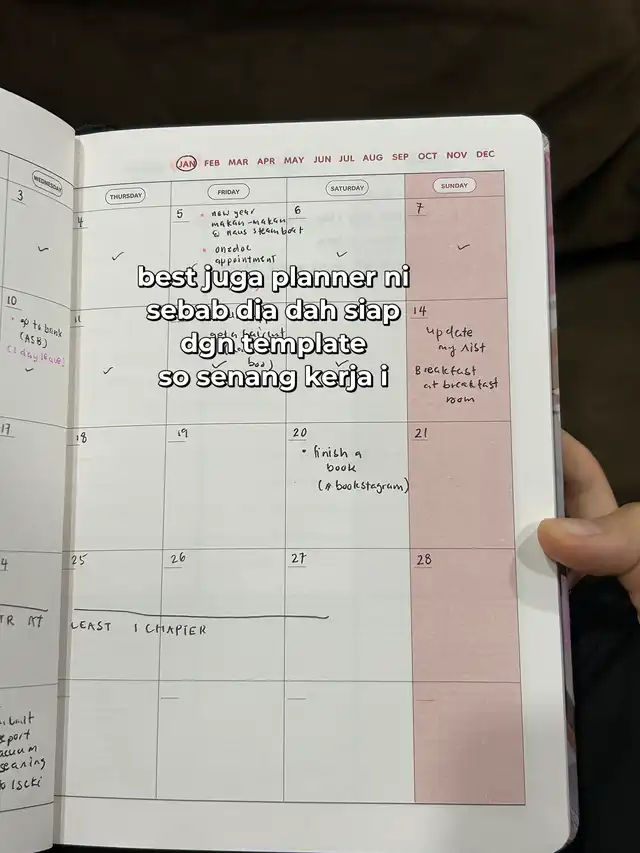 JAN FEB MAR APR MAY JUN JUL AUG SEP OCT NOV DEC
WEDNESDAY THURSDAY FRIDAY SATURDAY SUNDAY
3
4
5
• new year
makan-makan
@ naus steamboat
• ondoc
appointment
6
7
best juga planner ni
sebab dia dah siap
dgn template
so senang kerja i
10
• go to bank
(ASB)
11
get a haircut
14
update
my list
Breakfast
at breakfast
room
17
18
19
20
• finish a
book
(# bookstagram)
21
4
25
26
27
28
TR AT LEAST 1 CHAPTER
eport